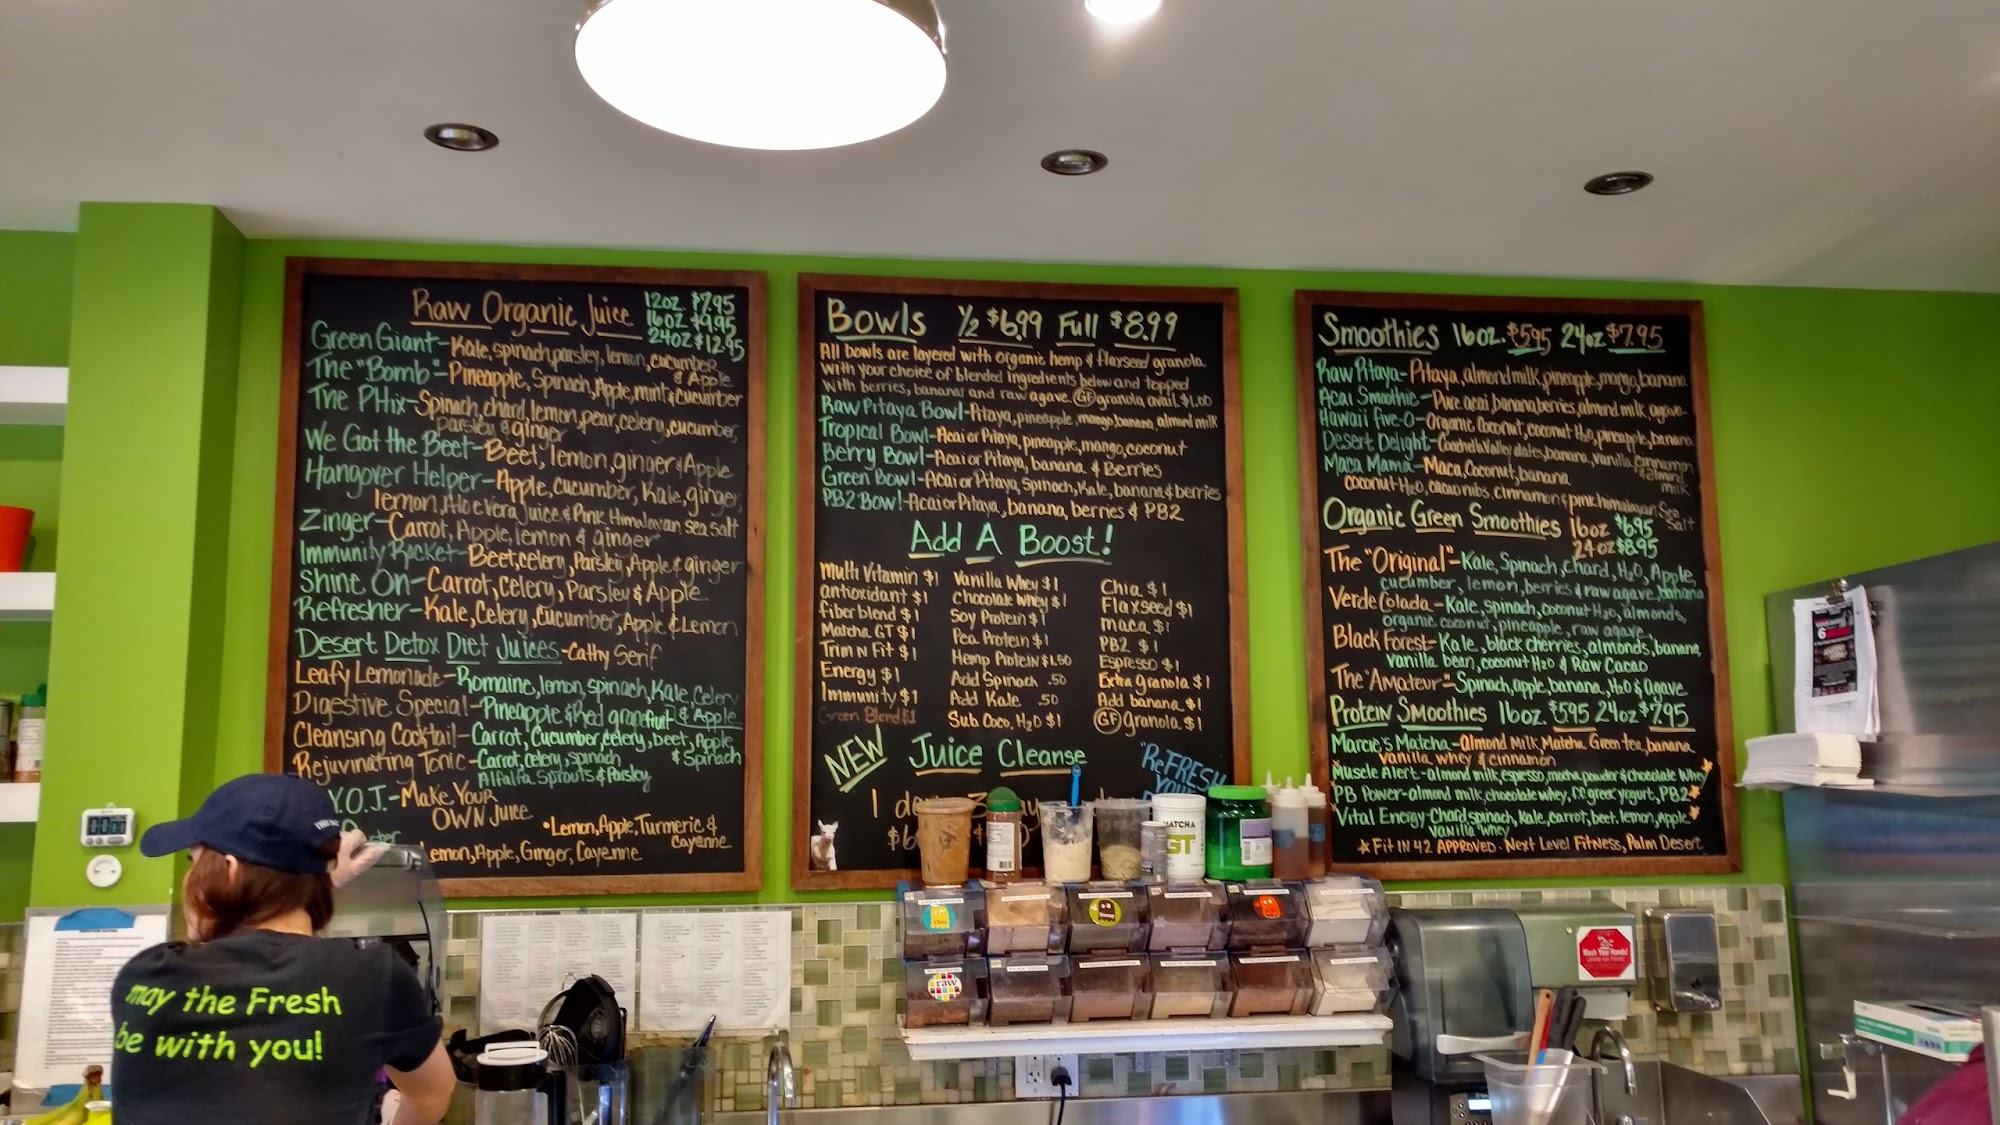 Raw Organic Juice 12oz. $7.95
16oz $9.95
24oz $12.95
Green Giant-Kale, spinach, parsley, lemon, cucumber
& Apple
The "Bomb"-Pineapple, Spinach, Apple, mint & cucumber
The PHix-Spinach, chard, lemon, pear, celery, cucumber,
parsley & ginger
We Got the Beet-Beet, lemon, ginger & Apple
Hangover Helper-Apple, cucumber, Kale, ginger,
lemon, Aloe Vera juice & Pink Himalayan sea salt
Zinger-Carrot, Apple, lemon & ginger
Immunity Rocket-Beet, celery, Parsley, Apple & ginger
Shine On-Carrot, Celery, Parsley & Apple
Refresher-Kale, Celery, Cucumber, Apple & Lemon
Desert Detox Diet Juices-Cathy Serif
Leafy Lemonade-Romaine, lemon, spinach, Kale, Celery
& Apple
Digestive Special-Pineapple & Red grapefruit
Cleansing Cocktail-Carrot, Cucumber, celery, beet, Apple
& Spinach
Rejuvinating Tonic-Carrot, celery, spinach
Alfalfa Sprouts & Parsley
Y.O.J.-Make Your
OWN Juice
•Lemon, Apple, Turmeric &
Cayenne
Lemon, Apple, Ginger, Cayenne
Bowls ½ $6.99 Full $8.99
All bowls are layered with organic hemp & flaxseed granola
with your choice of blended ingredients below and topped
with berries, banana and raw agave. GF granola avail. $1.00
Raw Pitaya Bowl-Pitaya, pineapple, mango, banana, almond milk
Tropical Bowl-Acai or Pitaya, pineapple, mango, coconut
Berry Bowl-Acai or Pitaya, banana & Berries
Green Bowl-Acai or Pitaya, spinach, Kale, banana & berries
PB2 Bowl-Acai or Pitaya, banana, berries & PB2
Add A Boost!
Multi Vitamin $1
antioxidant $1
fiber blend $1
Matcha GT $1
Trim n Fit $1
Energy $1
Immunity $1
Green Blend $1
Vanilla Whey $1
chocolate whey $1
Soy Protein $1
Pea Protein $1
Hemp Protein $1.50
Add Spinach .50
Add Kale .50
Sub. Coco. H2O $1
Chia $1
Flaxseed $1
maca $1
PB2 $1
Espresso $1
Extra Granola $1
Add banana $1
GF granola $1
NEW Juice Cleanse
"ReFRESH
YOUR
1 day 3 day
Smoothies 16oz. $5.95 24oz $7.95
Raw Pitaya-Pitaya, almond milk, pineapple, mango, banana
Acai Smoothie-Pure acai, banana, berries, almond milk, agave
Hawaii Five-O-Organic Coconut, coconut H2O, pineapple, banana
Desert Delight-Coachella Valley dates, banana, vanilla, cinnamon
& almond
milk
Maca Mama-Maca, Coconut, banana
coconut H2O, cacao nibs, cinnamon & pink himalayan Sea
Salt
Organic Green Smoothies 16oz $6.95
24oz $8.95
The "Original"-Kale, Spinach, chard, H2O, Apple,
cucumber, lemon, berries & raw agave, banana
Verde Colada-Kale, spinach, coconut H2O, almonds,
organic coconut, pineapple, raw agave
Black Forest-Kale, black cherries, almonds, banana,
vanilla bean, coconut H2O & Raw Cacao
The "Amateur"-Spinach, apple, banana, H2O & agave
Protein Smoothies 16oz. $5.95 24oz $7.95
Marcie's Matcha-almond Milk, Matcha Green tea, banana
vanilla whey & cinnamon
Muscle Alert-almond milk, espresso, mocha powder & chocolate Whey
PB Power-almond milk, chocolate whey, greek yogurt, PB2
Vital Energy-Chard, spinach, Kale, carrot, beet, lemon, Apple
vanilla whey
Fit IN 42 APPROVED. Next Level Fitness, Palm Desert
may the Fresh
be with you!
MATCHA
GT
Chia
Hemp
raw
Wash Your Hands!